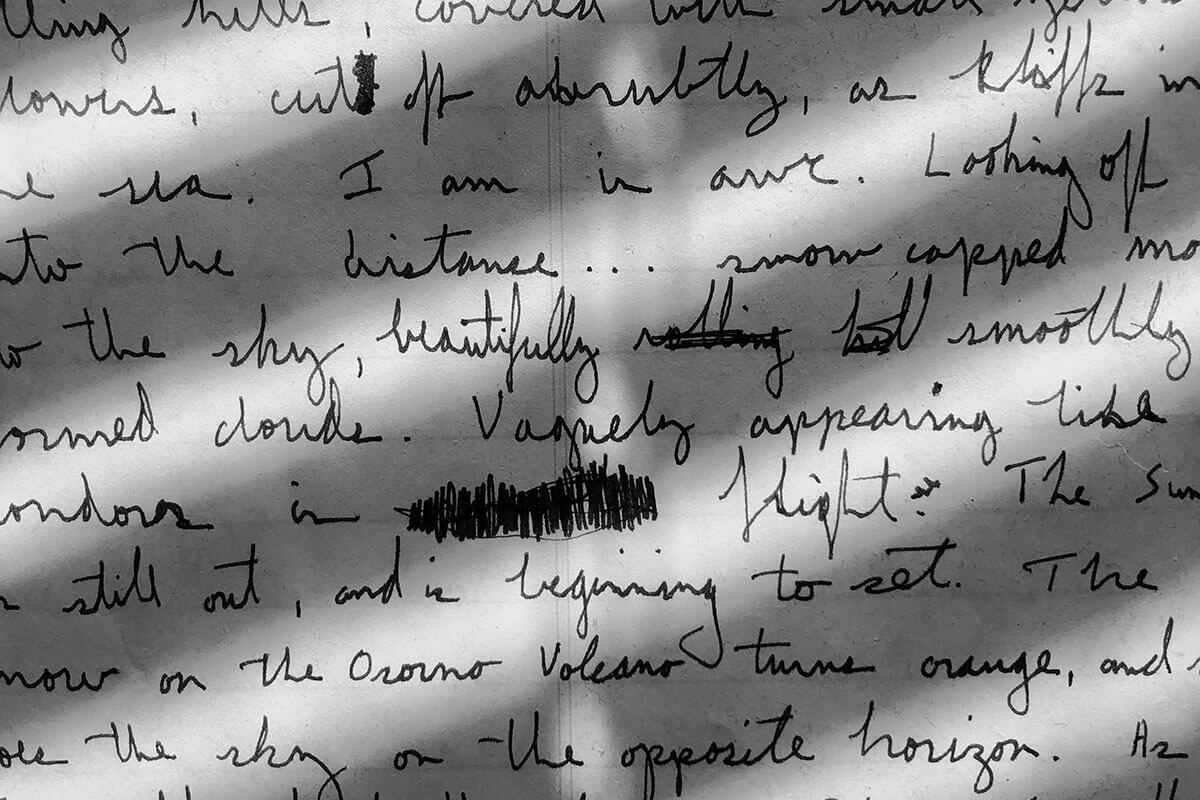 lling hills, covered with small yellow
lowers, cut off abrubtly, as kliffs in
he sea. I am in awe. Looking off
nto the distance... snow capped mo
o the sky, beautifully rolling smoothly
ormed clouds. Vaguely appearing like
ondors in flight. The Sun
s still out, and is beginning to set. The
now on the Osorno Volcano turns orange, and s
oes the sky on the opposite horizon. As